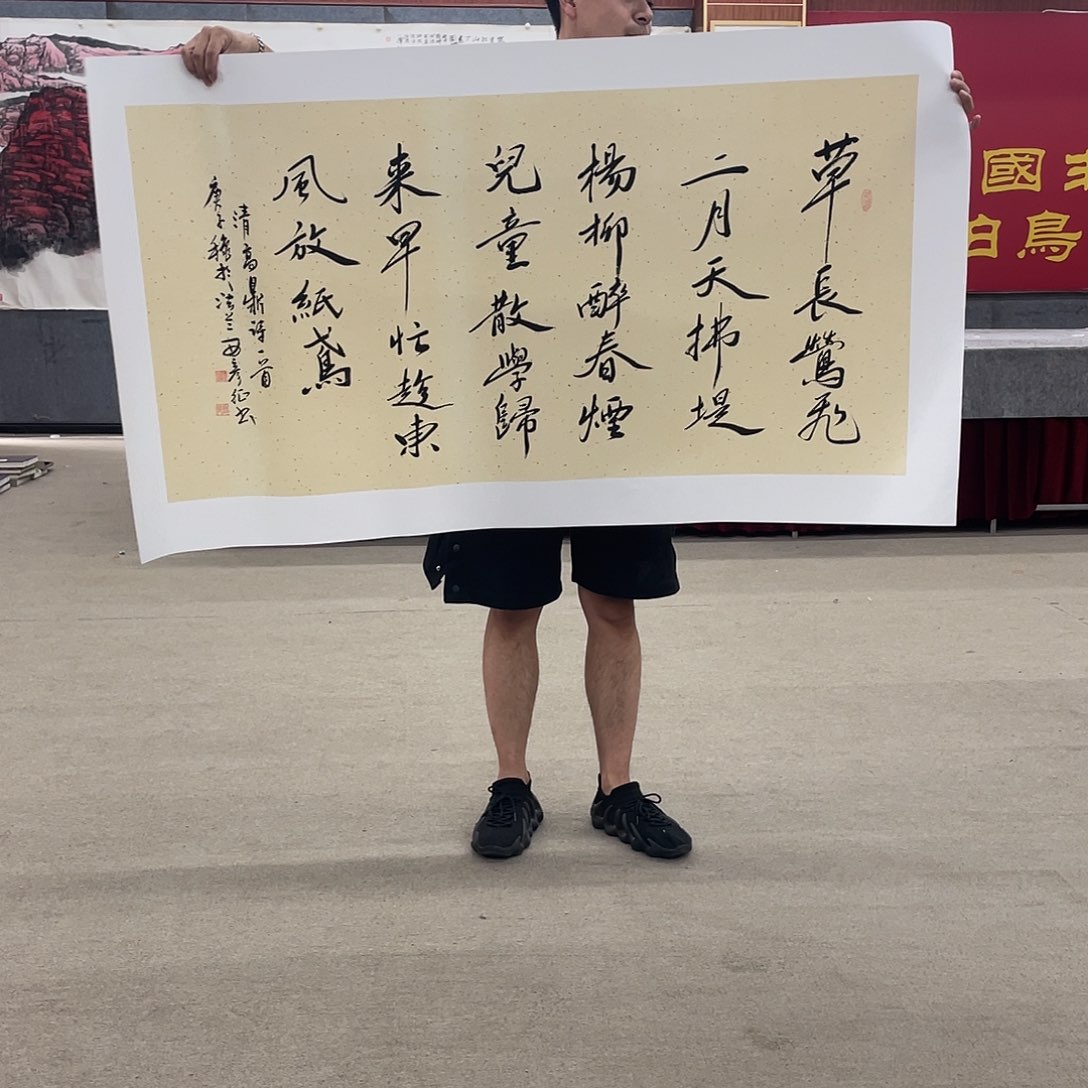 草長鶯飛
二月天拂堤
楊柳醉春煙
兒童散學歸
来早忙趁東
風放紙鳶
清高鼎詩一首
庚子 於 彦征书
國
鳥